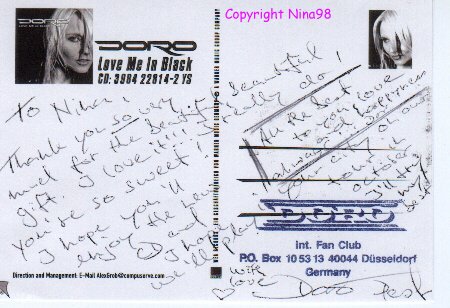 Copyright Nina98
DORO
DORO
Love Me In Black
CD: 3984 22814-2 YS
To Nina!
Thank you so very
much for the beautiful
gift. I love it!!! I really do!
You're so sweet!
I hope you'll
enjoy the new
CD and
I hope
we'll play
beautiful
All the best
to you love
and happiness
your city on our
tour in
october
I'll try
my best
DORO
Int. Fan Club
P.O. Box 10 53 13 40044 Düsseldorf
Germany
Direction and Management: E-Mail AlexGrob@compuserve.com
with
love
Doro Pesch